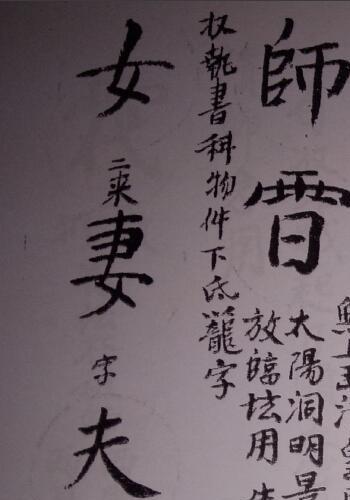 師
太陽洞明景
放臨坛用
執書科物件下氐籠字
女二來妻字夫